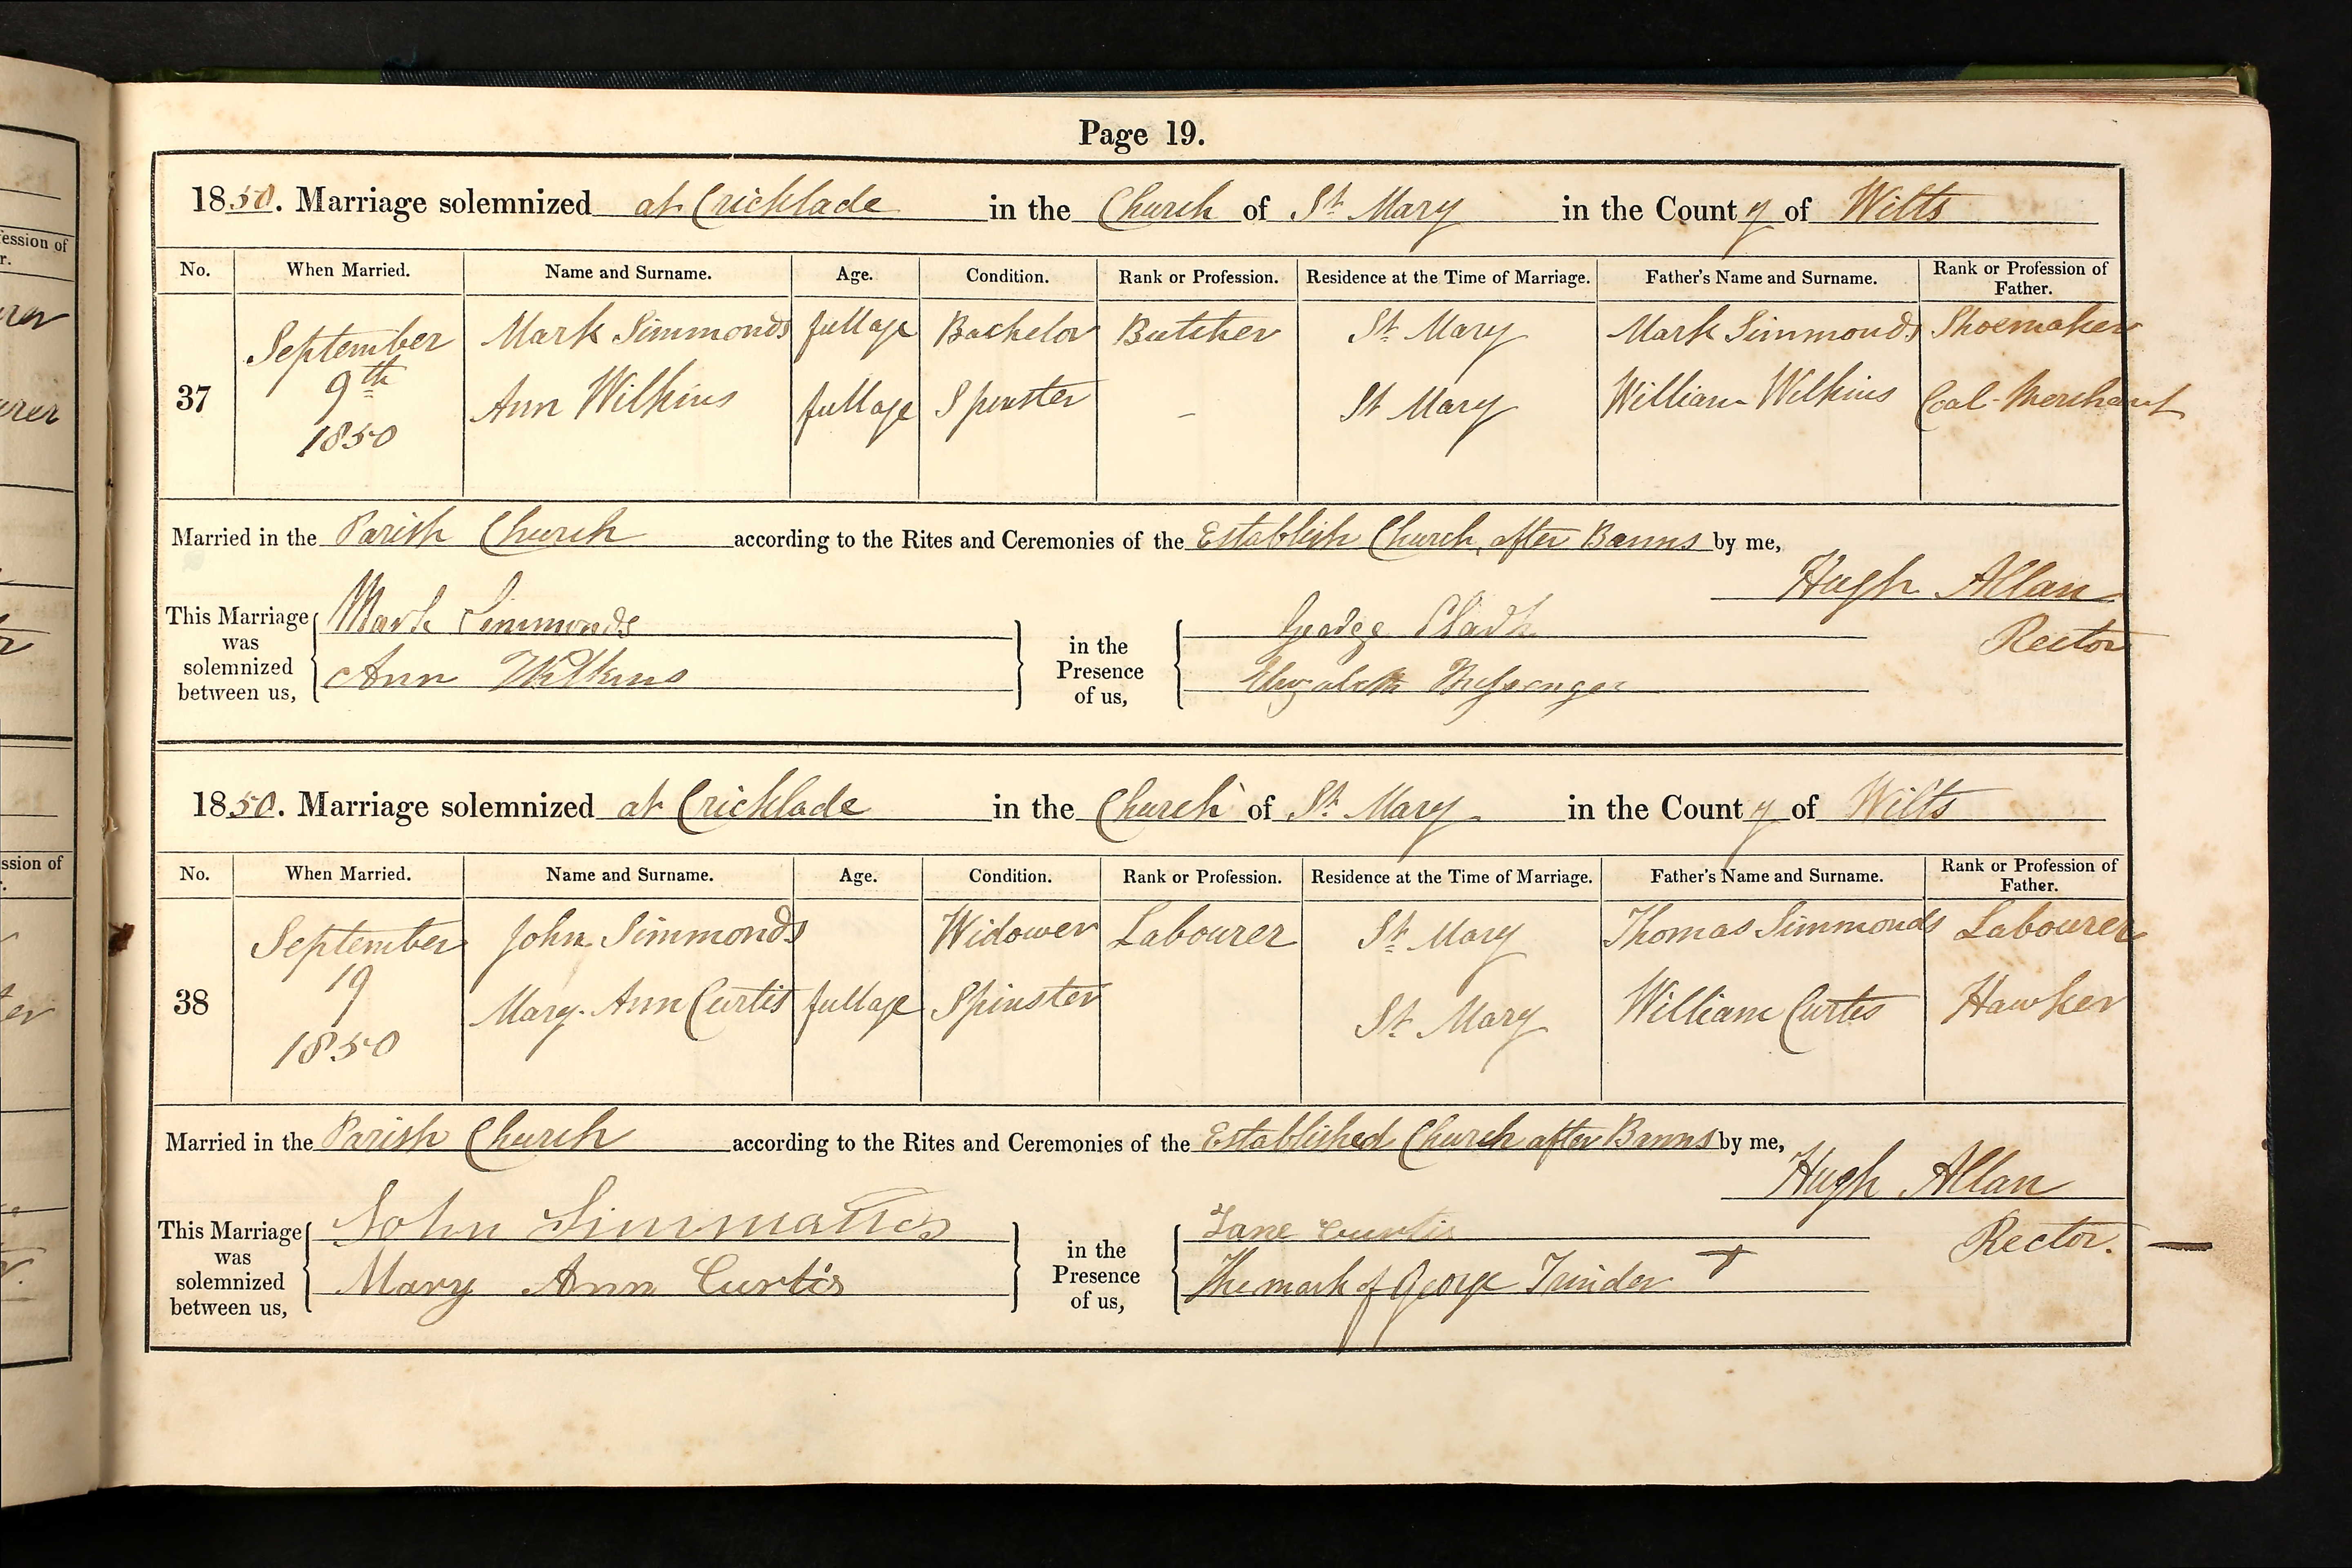 Page 19.
1850. Marriage solemnized at Cricklade in the Church of St Mary in the County of Wilts
No. When Married. Name and Surname. Age. Condition. Rank or Profession. Residence at the Time of Marriage. Father's Name and Surname. Rank or Profession of Father.
37 September 9th 1850
Mark Simmonds full age Bachelor Butcher St Mary Mark Simmonds Shoemaker
Ann Wilkins full age Spinster - St Mary William Wilkins Coal-Merchant
Married in the Parish Church according to the Rites and Ceremonies of the Establish Church, after Banns by me,
Hugh Allan
Rector
This Marriage was solemnized between us,
Mark Simmonds
Ann Wilkins
in the Presence of us,
George
Elizabeth Messenger
1850. Marriage solemnized at Cricklade in the Church of St Mary in the County of Wilts
No. When Married. Name and Surname. Age. Condition. Rank or Profession. Residence at the Time of Marriage. Father's Name and Surname. Rank or Profession of Father.
38 September 19 1850
John Simmonds Widower Labourer St Mary Thomas Simmonds Labourer
Mary Ann Curtis full age Spinster St Mary William Curtis Hawker
Married in the Parish Church according to the Rites and Ceremonies of the Established Church after Banns by me,
Hugh Allan
Rector.
This Marriage was solemnized between us,
John
Mary Ann Curtis
in the Presence of us,
Jane Curtis
The mark of George Trinder +